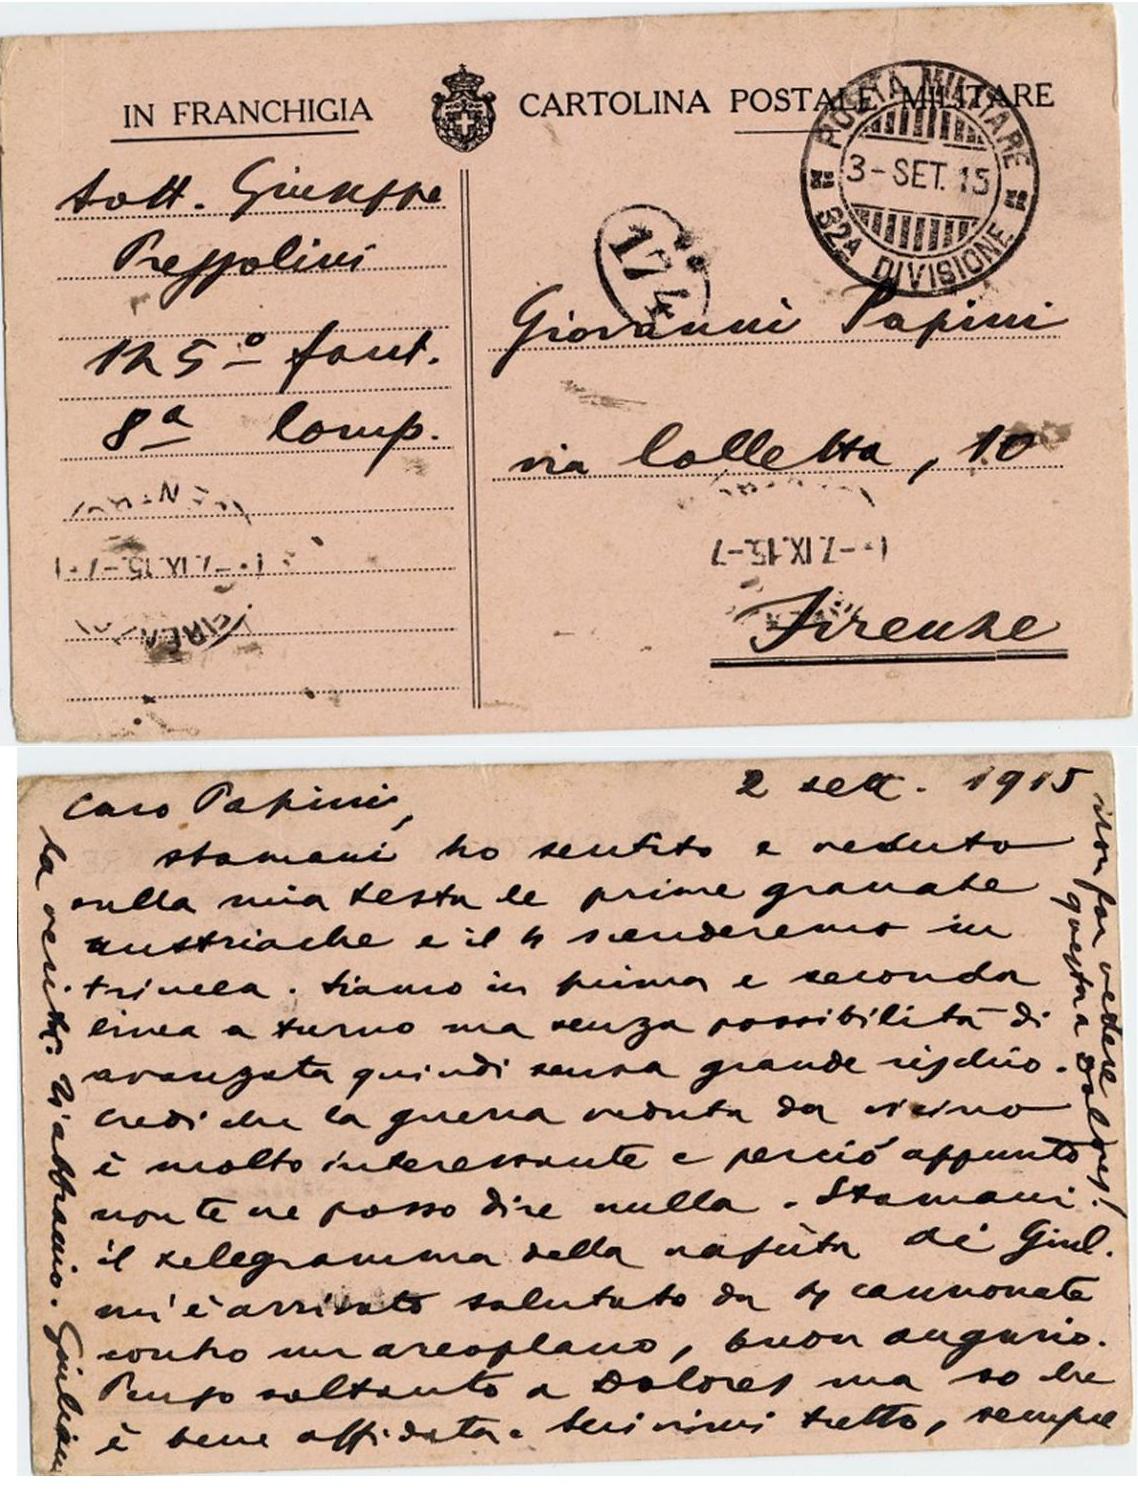 IN FRANCHIGIA
CARTOLINA POSTALE MILITARE
POSTA MILITARE
3-SET. 15
32A DIVISIONE
174
sott. Giuseppe
Prezzolini
125º fant.
8ª Comp.
Giovanni Papini
via Colletta, 10
Firenze
1·-7.IX.15.-7
1·-7.IX.15.-7·1
2 sett. 1915
Caro Papini,
stamani ho sentito e veduto
sulla mia testa le prime granate
austriache e il 4 scenderemo in
trincea. Siamo in prima e seconda
linea a turno ma senza possibilità di
avanzata quindi senza grande rischio.
Credi che la guerra veduta da vicino
è molto interessante e perciò appunto
non te ne posso dire nulla. Stamani
il telegramma della nascita di Giul.
mi è arrivato salutato da 4 cannonate
contro un areoplano, buon augurio.
Penso soltanto a Dolores ma so che
è bene affidata. Scrivimi tutto, sempre
la verità. Ti abbraccio. Giuliano
Non far vedere
questa a Dolores!